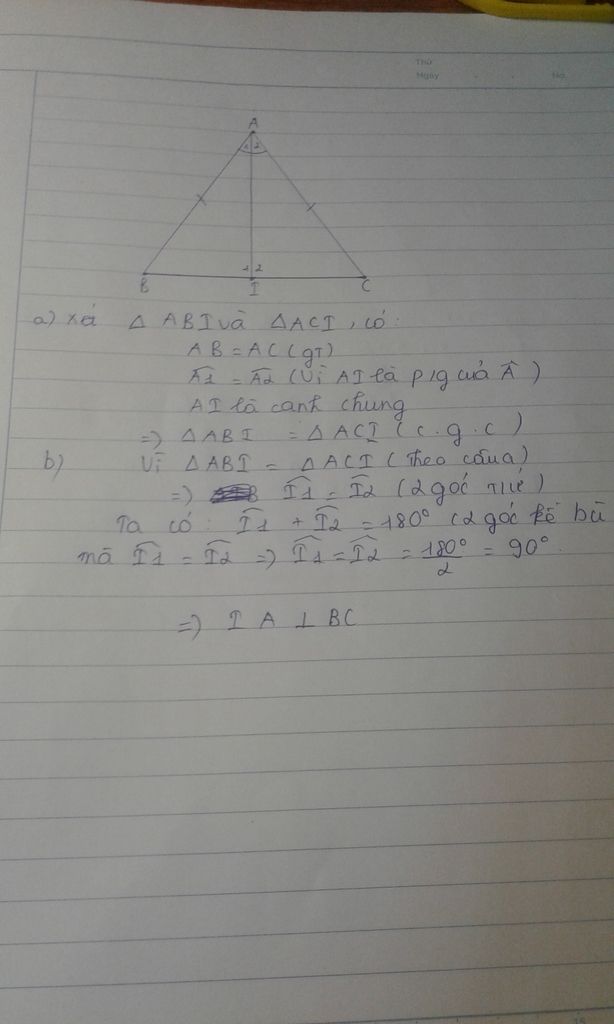 Thứ
Ngày No.
A
1 2
1 2
B I C
a) xét Δ ABI và Δ ACI, có:
AB = AC (gT)
Â1 = Â2 (Vì AI là p/g của Â)
AI là cạnh chung
=) Δ ABI = Δ ACI (c.g.c)
b) Vì Δ ABI = Δ ACI (theo câu a)
=) Î1 = Î2 (2 góc)
Ta có: Î1 + Î2 = 180° (2 góc kề bù
mà Î1 = Î2 =) Î1 = Î2 = 180°/2 = 90°.
=) I A ⊥ BC